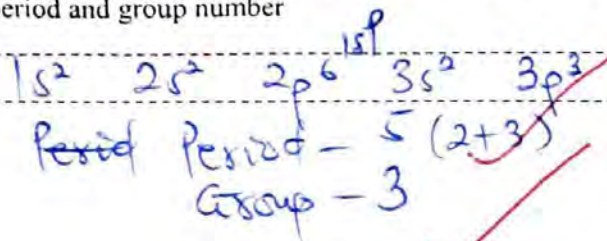 eriod and group number
1s² 2s² 2p⁶ 3s² 3p³
Perid Period - 5 (2+3)
Group - 3